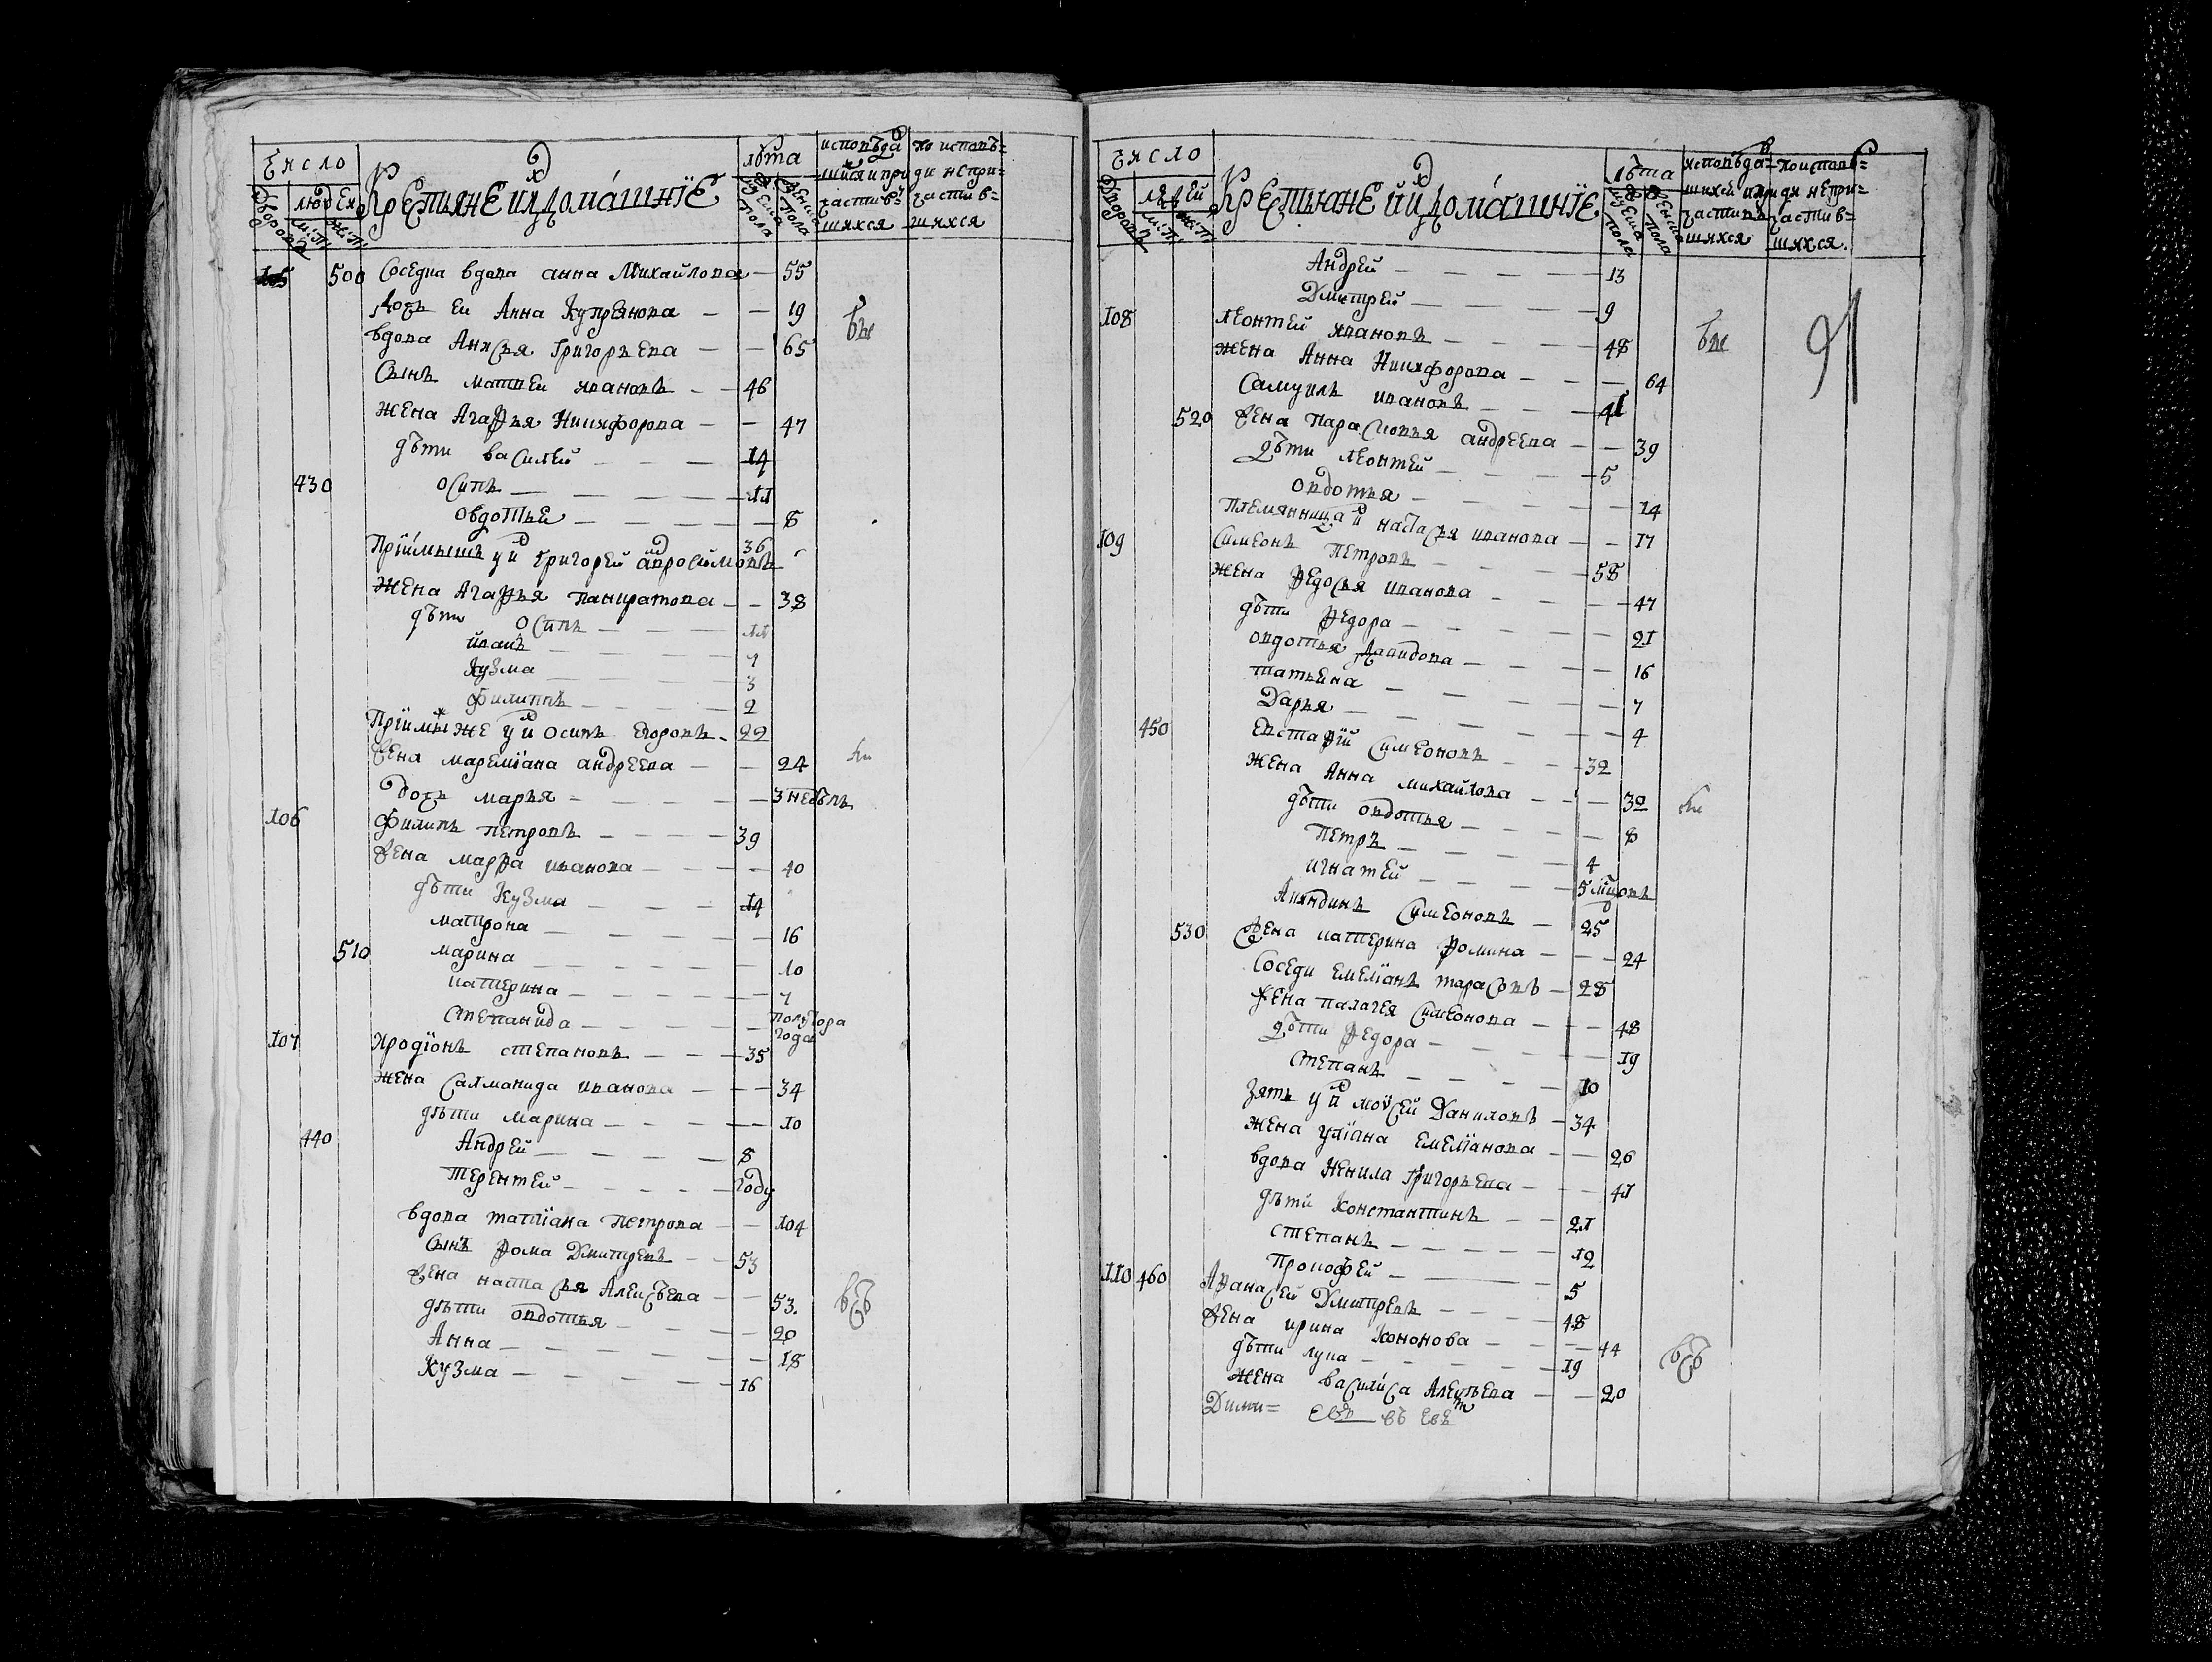 Число
дворовъ
людей
м: п:
ж: п:
Крестьяне и их домашнїе
лѣта
мужеска пола
женска пола
исповѣдав
шихся и при
частив
шихся
по исповѣ=
ди не при=
частив=
шихся
105 500 Соседка вдова анна Михайлова — 55
Дочь еи Анна Купреянова — — 19
вдова Анисья Григорьева — — 65
Сынъ матвеи ивановъ — — 46
Жена Агафья Никифорова — — 47
дѣти василей — — — 14
430 осипъ — — — — 11
овдотьи — — — — 8
Прїимышъ у и Григорей авросимовъ 36
Жена Агафья панкратова — — 38
дѣти осипъ — — — 11
иванъ — — — — 7
кузма — — — — 3
филиппъ — — — — 2
Прїимыже у и осипъ Егоровъ — 22
Жена маремїана андреева — — 24
дочь марья — — — — 3 недѣль
106 филипъ петровъ — — — — 39
Жена марфа иванова — — — — 40
дѣти кузма — — — 14
матрона — — — — 16
510 марина — — — — 10
катерина — — — — 7
степанида — — — — полутора
года
107 иродїонъ степановъ — — — 35
жена Салманида иванова — — — 34
дѣти марина — — — — 10
440 Андрей — — — — 8
терентей — — — — году
вдова татїана петрова — — 104
сынъ фома Дмитревъ — — 53
Жена настасья Алексѣева — — 53.
дѣти овдотья — — — 20
Анна — — — — 18
Кузма — — — — 16
всѣ
Число
дворовъ
людей
м: п:
ж: п:
Крестьяне и их домашнїе
лѣта
мужеска пола
женска пола
исповѣдав=
шихся и при
частив
шихся
по исповѣ=
ди не при=
частив=
шихся.
Андрей — — — — 13
Дмитрей — — — — 9
108 леонтей ивановъ — — — — 48
жена Анна Никифорова — — — 64
Самуилъ ивановъ — — — 41
520 Жена парасковья андреева — — 39
дѣти леонтей — — — — 5
овдотья — — — — 14
племянница и настасья иванова — — 17
109 Симеонъ петровъ — — — — 58
жена федосья иванова — — — — 47
дѣти федора — — — — 21
овдотья — — — — 16
татьяна — — — — 7
Дарья — — — — 4
450 Евстафїй Симеоновъ — — — 32
жена Анна михайлова — — — 32
дѣти овдотья — — — — 8
петръ — — — — 4
игнатей — — — — 5 мцовъ
Акиндинъ Симеоновъ — 25
530 Жена катерина фомина — — — 24
Соседи емелїанъ тарасовъ — 28
Жена палагея Симеонова — — — 48
дѣти федора — — — — 19
степанъ — — — — 10
Зять у и моѵсей Даниловъ — 34
жена улїана емелїанова — — 26
вдова Ненила Григорьева — — — 41
дѣти константинъ — — 21
степанъ — — — — 12
прокофей — — — — 5
110 460 Афанасей Дмитревъ — — 48
Жена ирина кононова — — — 44
дѣти лука — — — — 19
жена василиса Алексѣева — — 20
всѣ